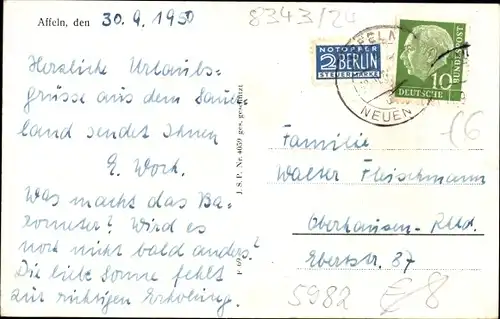 Affeln, den 30.9.1950
Herzliche Urlaubs-
grüsse aus dem Sauer-
land sendet Ihnen
E. Work.
Was macht das Ba-
rometer? Wird es
noch nicht bald anders?
Die liebe Sonne fehlt
zur richtigen Erholung.
J. S. P. Nr. 4659 ges. geschützt
8343/24
NOTOPFER
2 BERLIN
STEUERMARKE
NEUEN
10
DEUTSCHE
BUNDESPOST
Familie
Walter Fleischmann
Oberhausen-Rhld.
Ebertstr. 87
5982
8